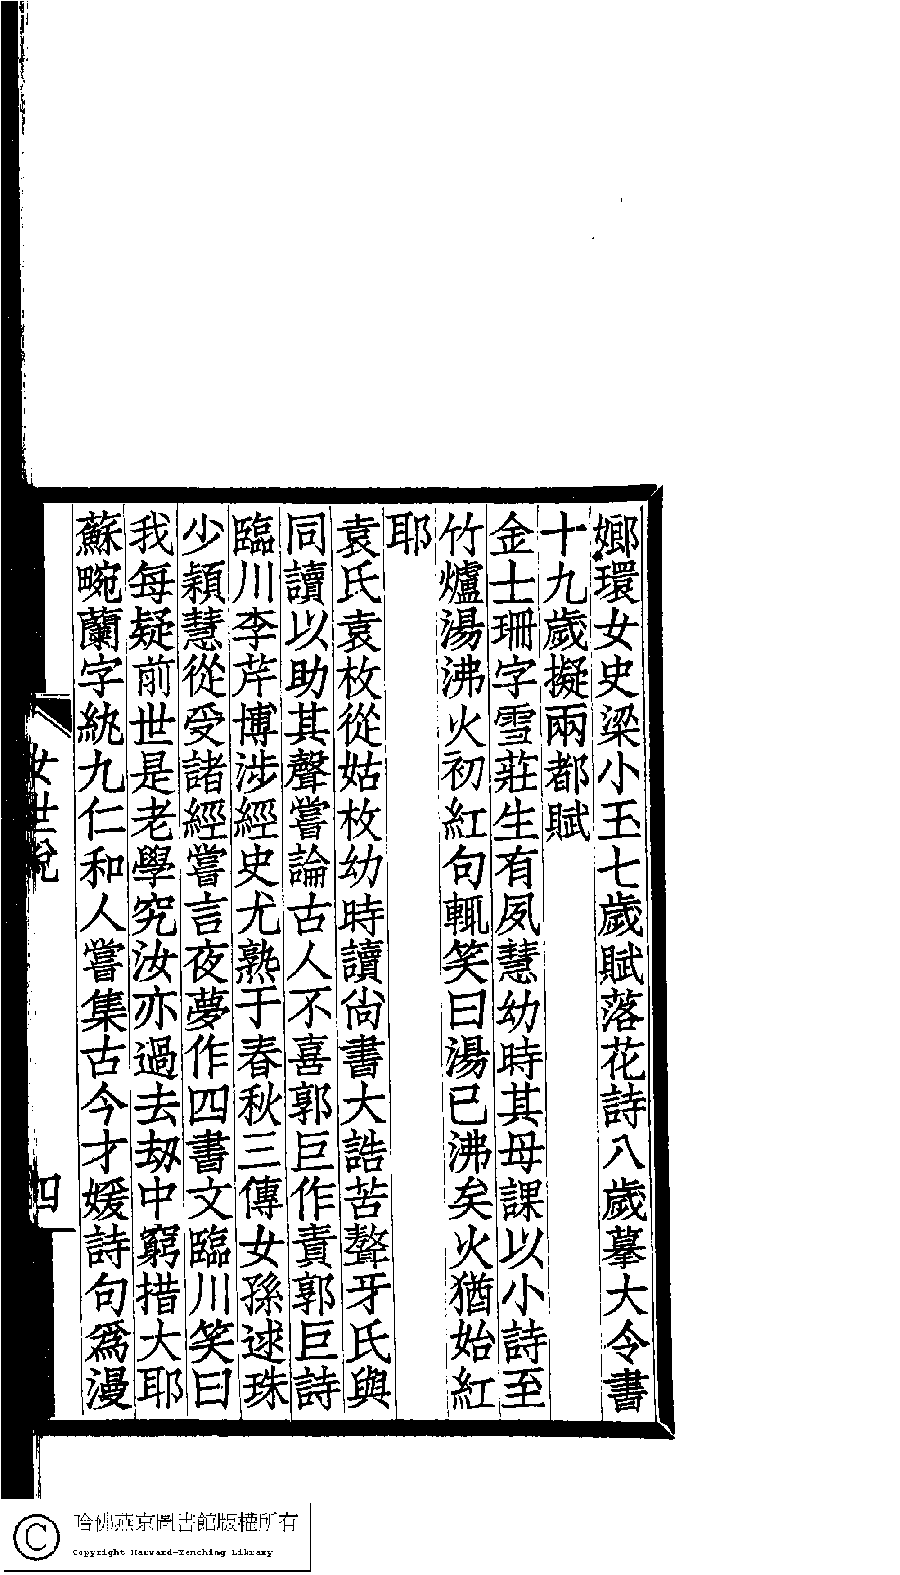 嫏環女史梁小玉七歲賦落花詩八歲摹大令書
十九歲擬兩都賦
金士珊字雪莊生有夙慧幼時其母課以小詩至
竹爐湯沸火初紅句輒笑曰湯已沸矣火猶始紅
耶
袁氏袁枚從姑枚幼時讀尙書大誥苦聱牙氏與
同讀以助其聲嘗論古人不喜郭巨作責郭巨詩
臨川李芹博涉經史尤熟于春秋三傳女孫逑珠
少穎慧從受諸經嘗言夜夢作四書文臨川笑曰
我每疑前世是老學究汝亦過去劫中窮措大耶
蘇畹蘭字紉九仁和人嘗集古今才媛詩句爲漫
女世說
四
哈佛燕京圖書館版權所有
Copyright Harvard-Yenching Library